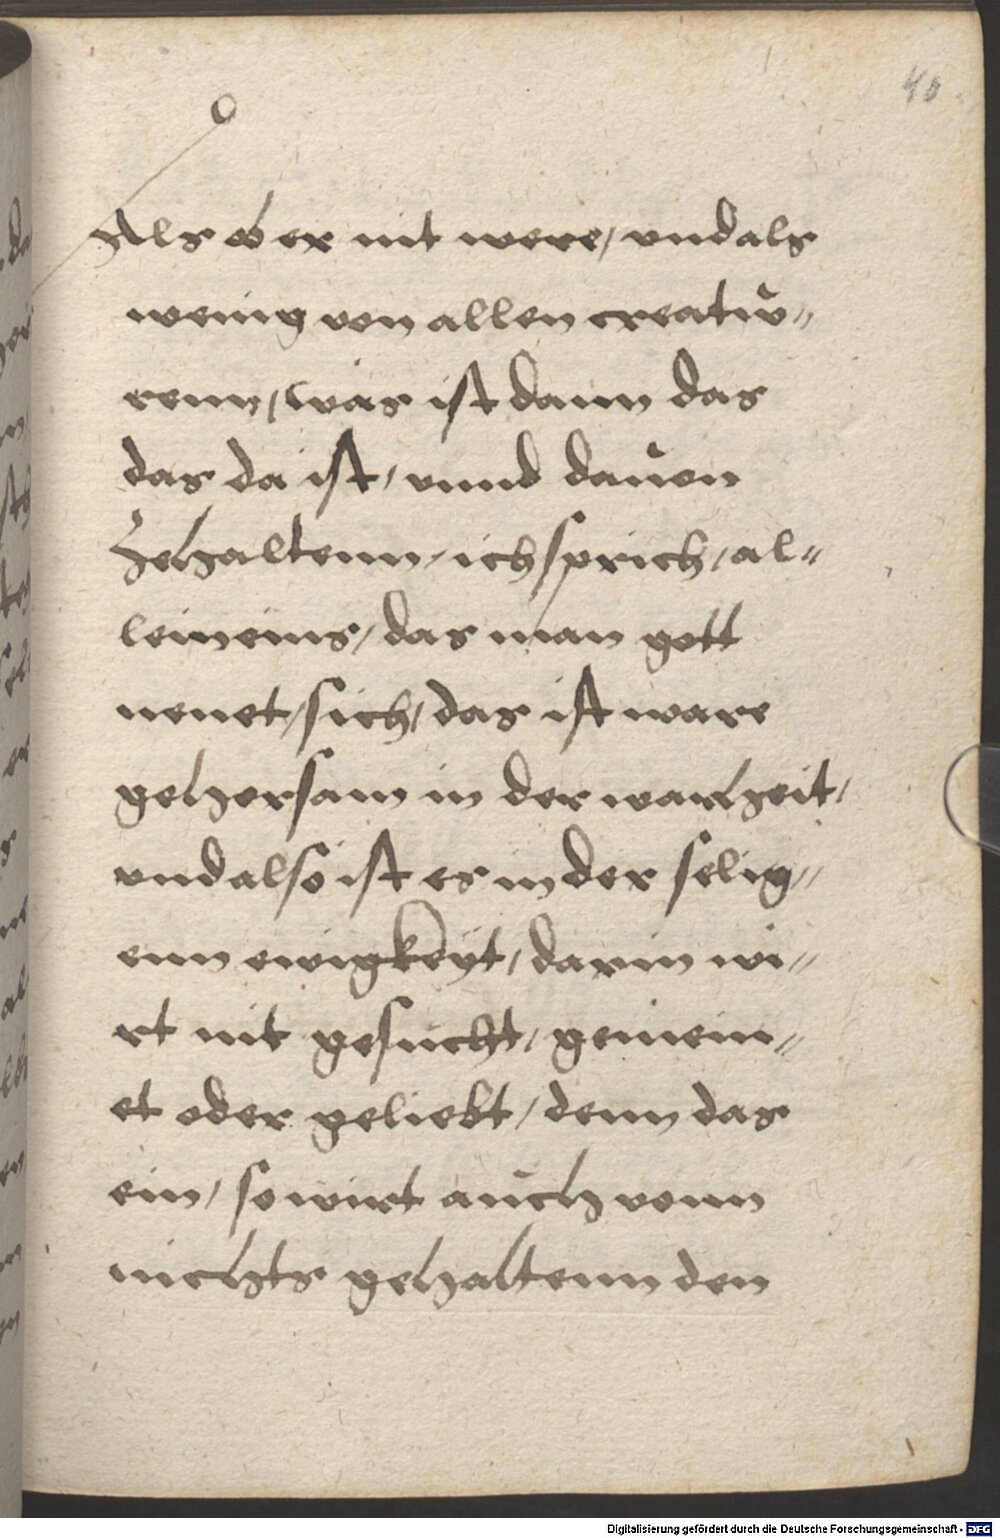 40
Als ob er nit were/ vnd als
wenig von allen creatuͦ⸗
renn/ was ist dann das
das da ist/ vnnd dauon
zehaltenn/ ich sprich/ al⸗
lein eins/ das man gott
nenet/ sich/ das ist ware
gehorsam in der warheit/
vnd also ist es in der selig⸗
enn ewigkeyt/ darin wi⸗
rt nit gesucht/ gemein⸗
et oder geliebt/ denn das
ein/ so wirt auch vonn
nichts gehaltenn den
Digitalisierung gefördert durch die Deutsche Forschungsgemeinschaft - DFG